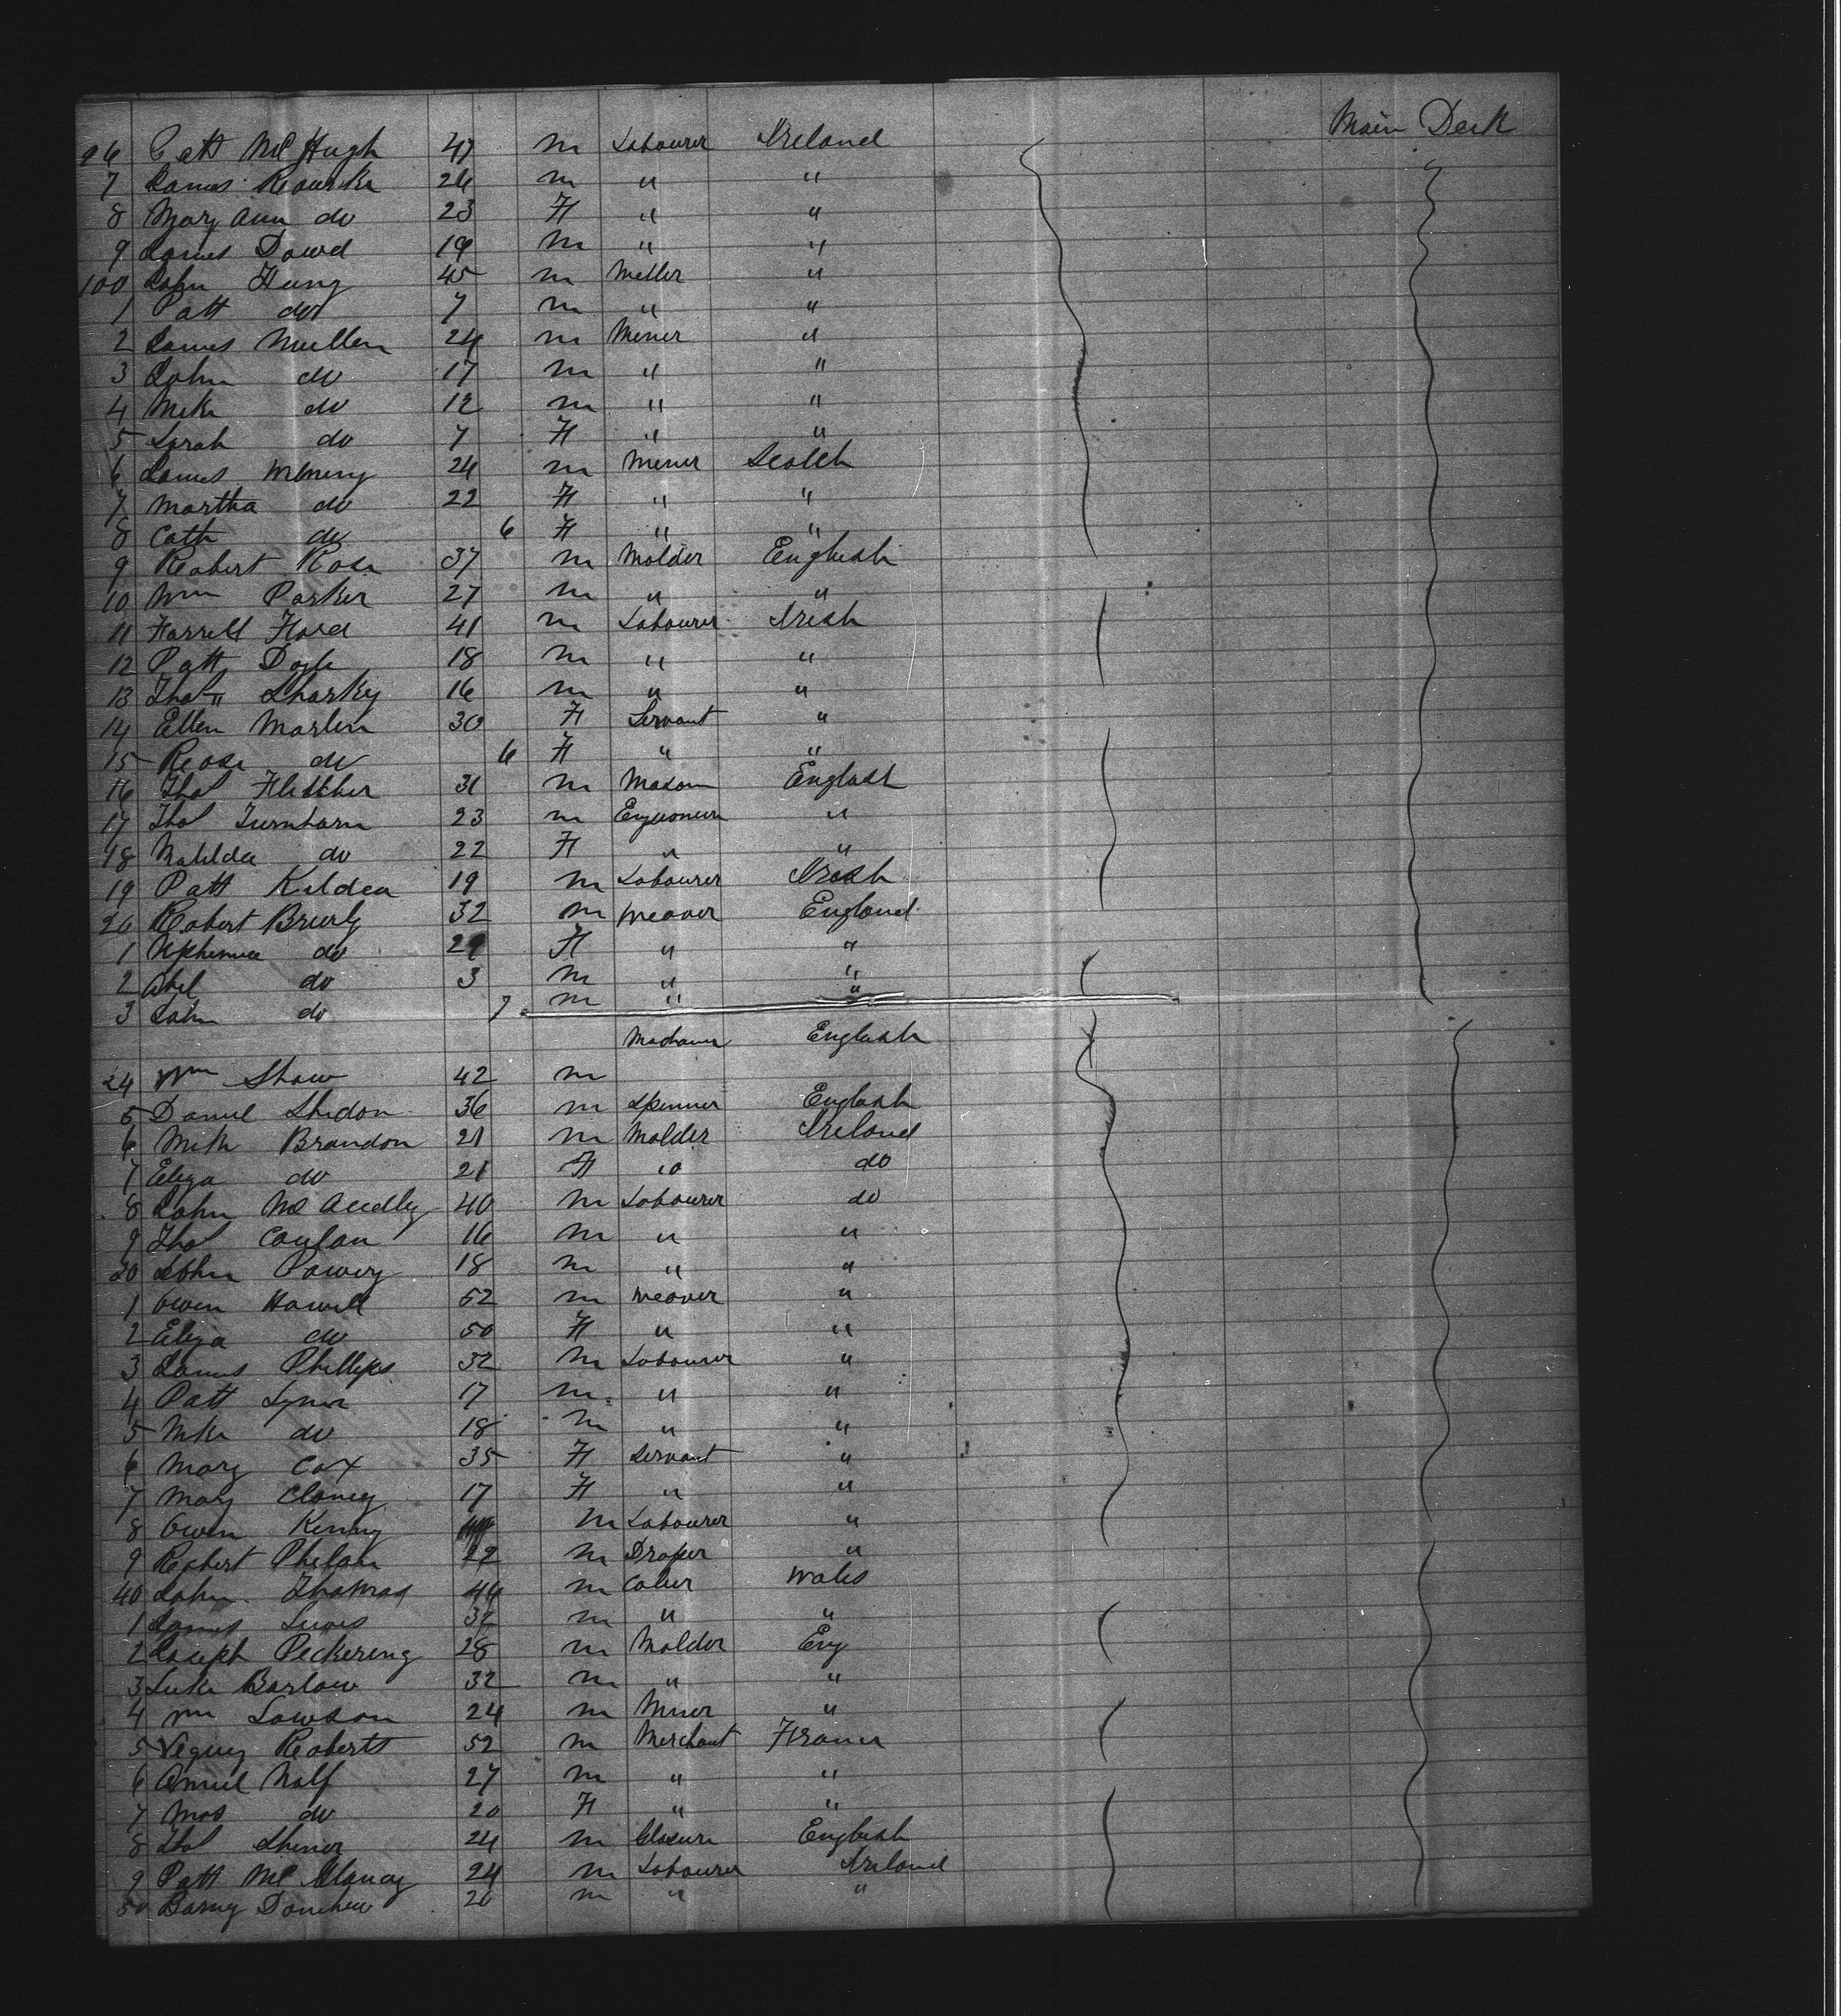 Main Deck
96 Patt Mc Hugh 47 m Labourer Ireland
7 James Rourke 26 m " "
8 Mary Ann do 23 F " "
9 James Dowd 19 m " "
100 John 45 m Miller "
1 Patt do 7 m " "
2 James Mullen 24 m Miner "
3 John do 17 m " "
4 Mike do 12 m " "
5 Sarah do 7 F " "
6 James 24 m Miner Scotch
7 Martha do 22 F " "
8 Cath do 6 F " "
9 Robert Rose 37 m Molder English
10 Wm Parker 27 m " "
11 Farrell 41 m Labourer Irish
12 Patt Doyle 18 m " "
13 Thos Sharkey 16 m " "
14 Ellen Marlen 30 F Servant "
15 Rose do 6 F " "
16 Thos Fletcher 31 m Mason English
17 Thos Turnham 23 m "
18 Matilda do 22 F " "
19 Patt Kildea 19 m Labourer Irish
20 Robert Brierly 32 m Weaver England
1 do F " "
2 Abel do 3 m " "
3 John do 7 m " "
English
24 Wm Shaw 42 m
5 Daniel Shidon 36 m Spinner English
6 Mik Brandon 21 m Molder Ireland
7 Eliza do 21 F do
8 John Mc 40 m Labourer do
9 Thos Coulan 16 m " "
30 John 18 m " "
1 Owen Howell 52 m Weaver "
2 Eliza do 50 F " "
3 James Phillips 32 m Labourer "
4 Patt 17 m " "
5 Mke do 18 m " "
6 Mary Cox 35 F Servant "
7 Mary Clancy 17 F " "
8 Owen Kenny m Labourer "
9 Robert Phelan 22 m Draper "
40 John Thomas 44 m Wales
1 James 32 m " "
2 Joseph Peckering 28 m Molder Eng
3 Luke Barlow 32 m " "
4 Wm Lawson 24 m Miner "
5 Roberts 52 m Merchant France
6 27 m " "
7 Mrs do 20 F " "
8 Thos 24 m English
9 Patt Mc 24 m Labourer Ireland
50 Barney 20 m " "